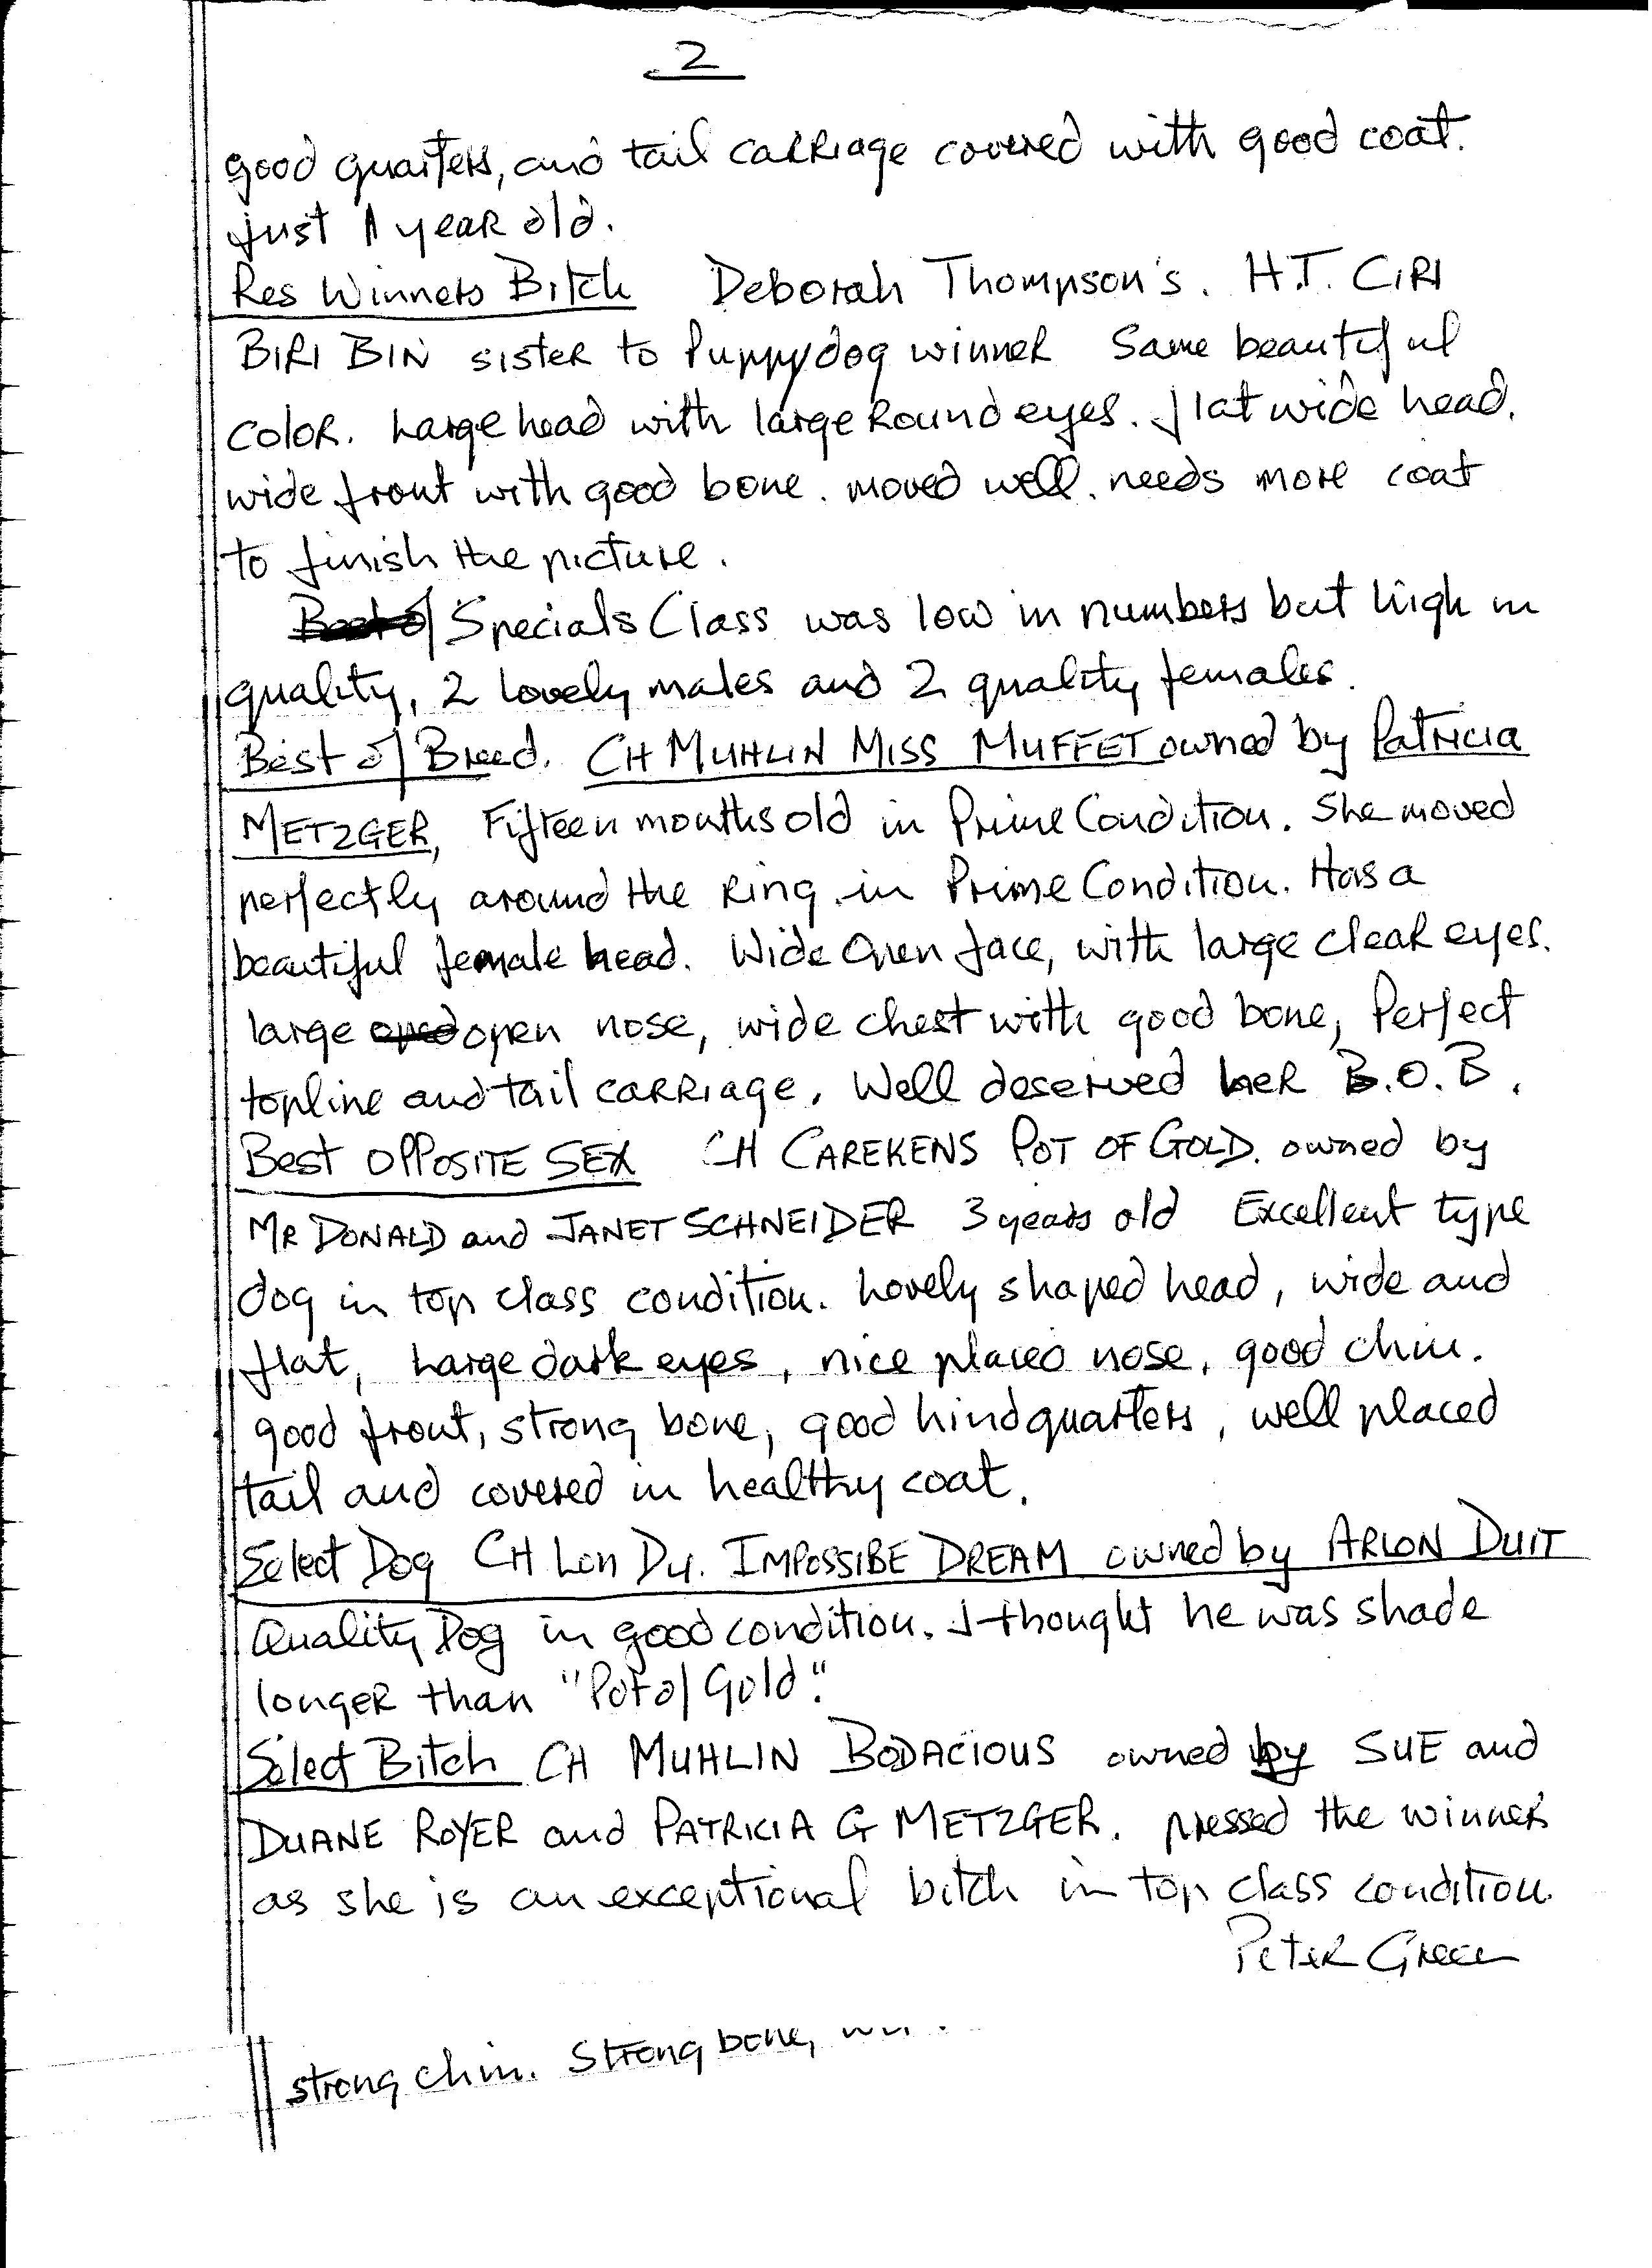 2
good quarters, and tail carriage covered with good coat.
just 1 year old.
Res Winners Bitch Deborah Thompson's. H.T. CIRI
BIRI BIN sister to Puppy dog winner Same beautiful
color. Large head with large Round eyes. flat wide head.
wide front with good bone. moved well. needs more coat
to finish the picture.
Best of Specials Class was low in numbers but high in
quality, 2 lovely males and 2 quality females.
Best of Breed. CH MUHLIN MISS MUFFET owned by Patricia
METZGER, Fifteen months old in Prime Condition. She moved
perfectly around the Ring in Prime Condition. Has a
beautiful female head. Wide Open face, with large clear eyes.
large open nose, wide chest with good bone, Perfect
topline and tail carriage. Well deserved her B.O.B.
Best OPPOSITE SEX CH CAREKENS POT OF GOLD. owned by
MR DONALD and JANET SCHNEIDER 3 years old Excellent type
dog in top class condition. Lovely shaped head, wide and
flat, Large dark eyes, nice placed nose, good chin.
good front, strong bone, good hindquarters, well placed
tail and covered in healthy coat.
Select Dog CH Lon Du. IMPOSSIBE DREAM owned by ARLON DUIT
Quality Dog in good condition. I thought he was shade
longer than "Pot of Gold".
Select Bitch CH MUHLIN BODACIOUS owned by SUE and
DUANE ROYER and PATRICIA G METZGER. pressed the winner
as she is an exceptional bitch in top class condition.
Peter Green
strong chin. Strong bone,